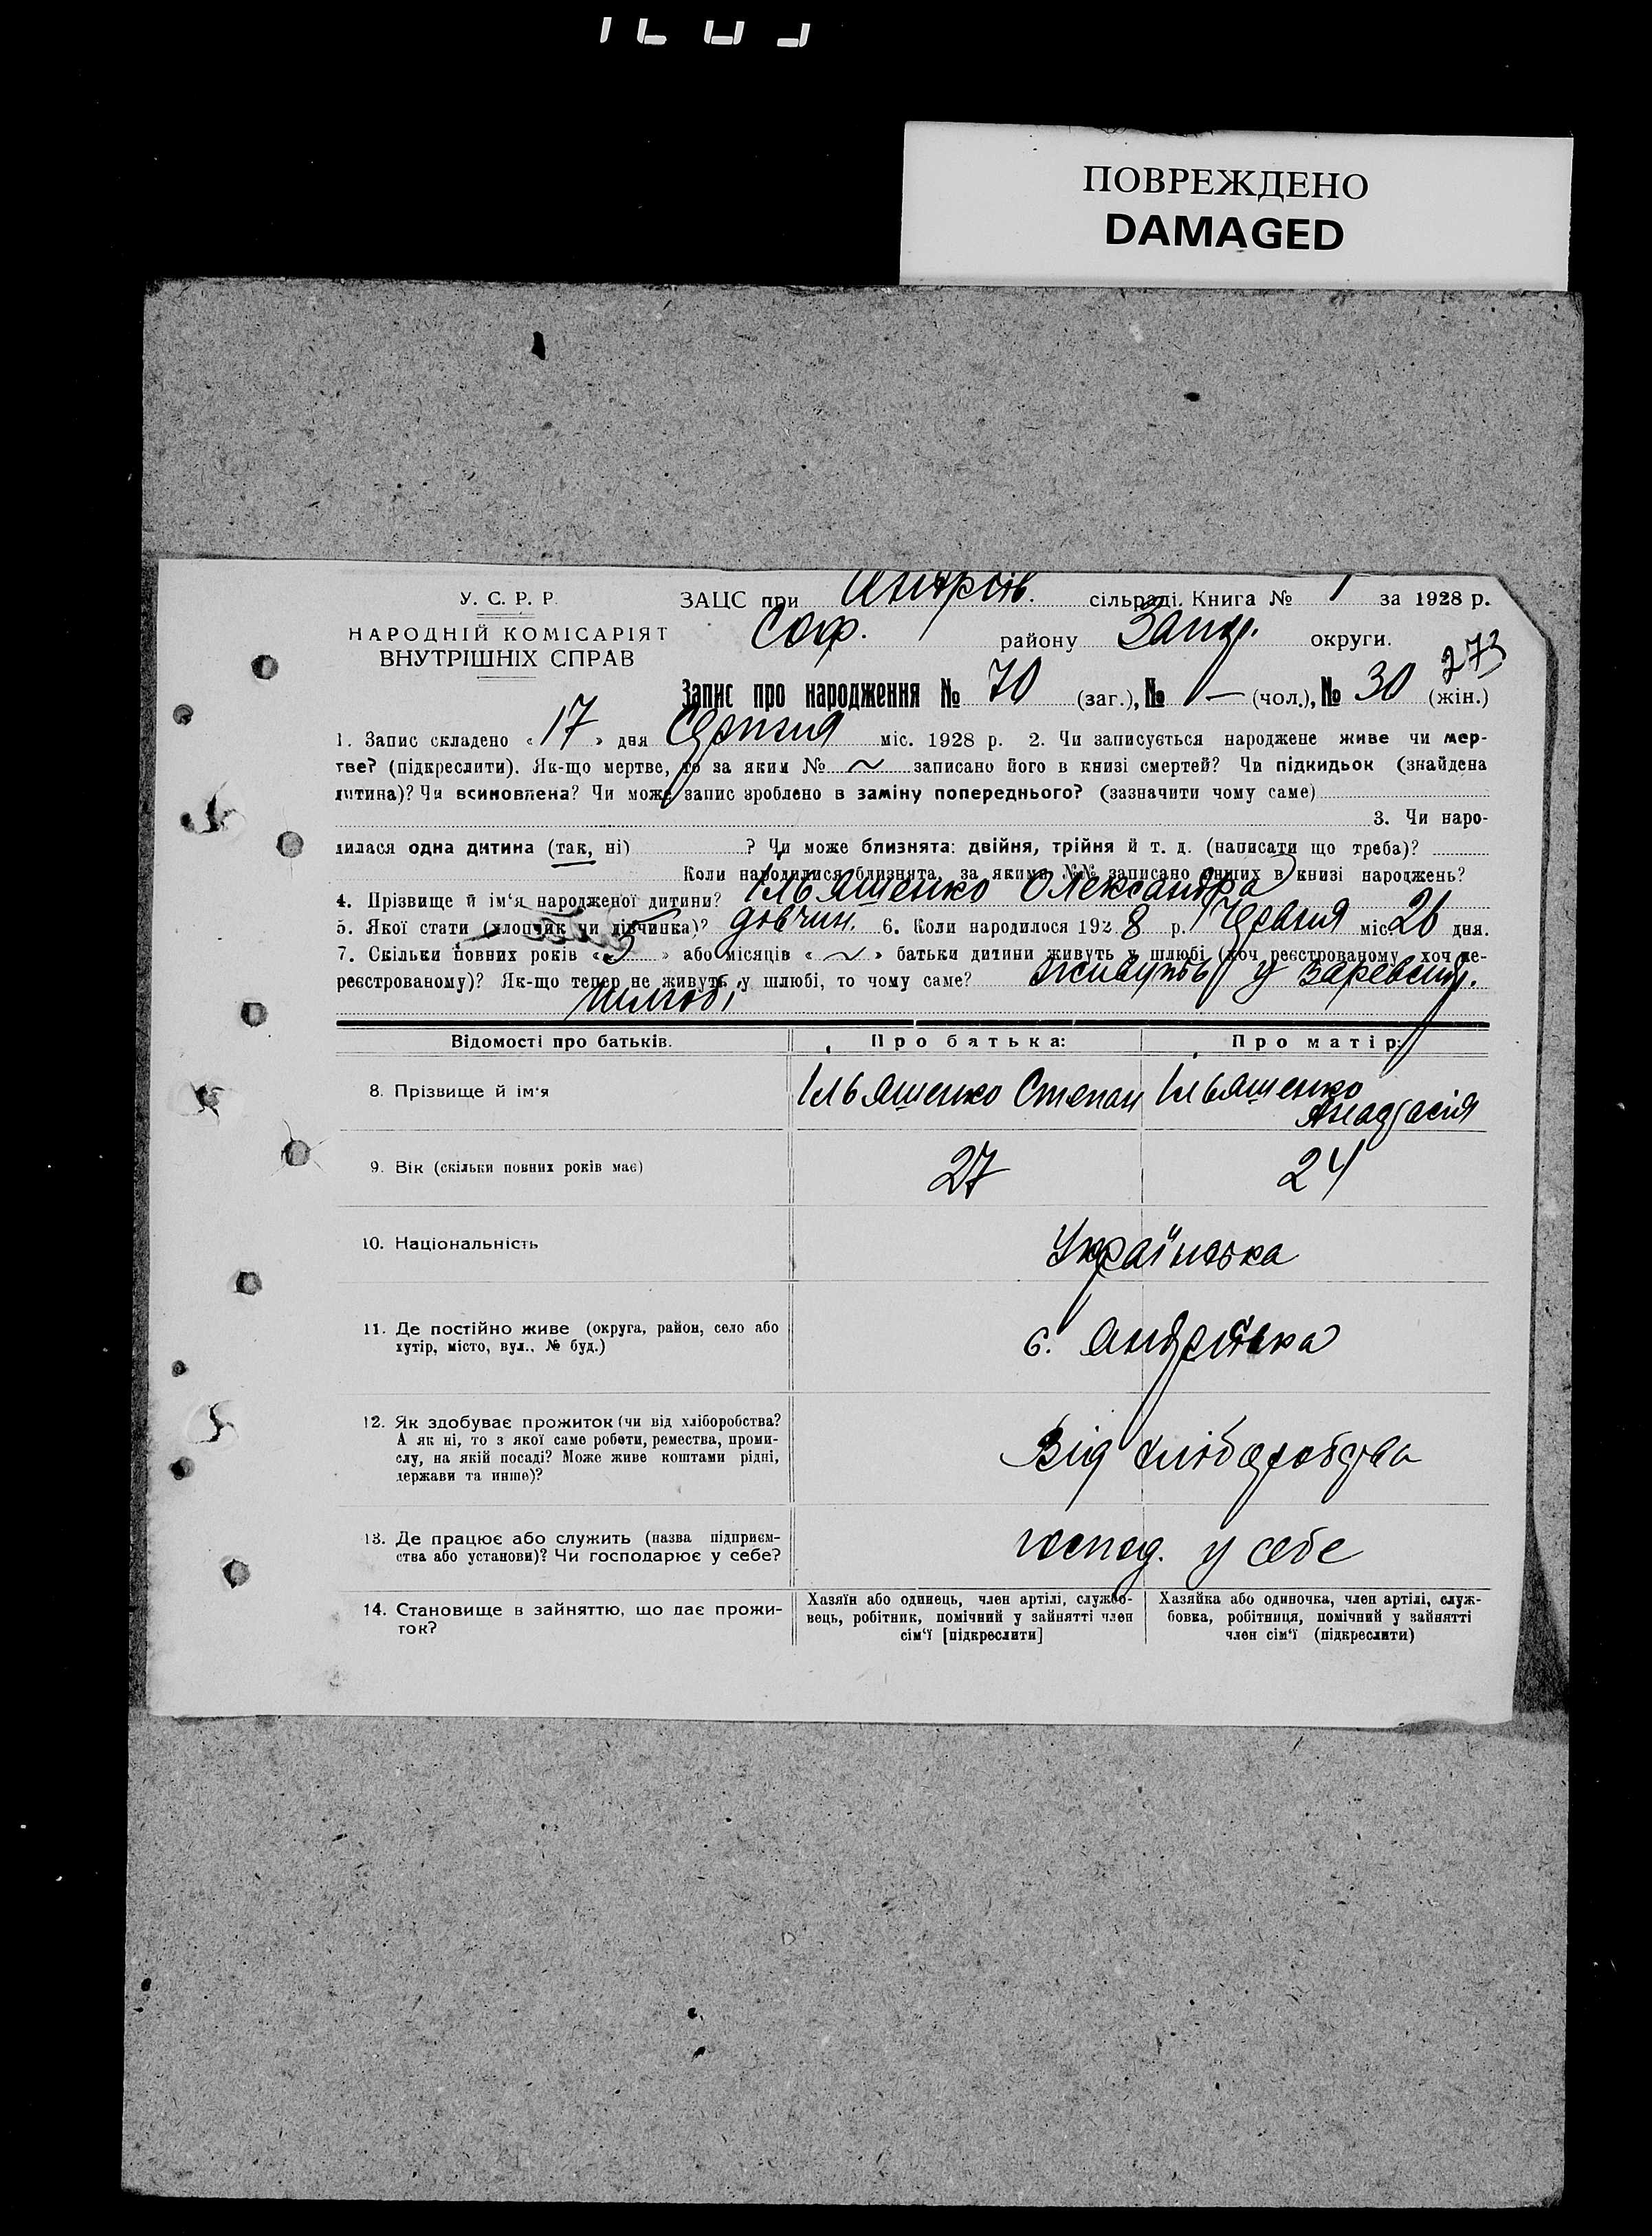 ПОВРЕЖДЕНО
DAMAGED
У. С. Р. Р.
НАРОДНІЙ КОМІСАРІЯТ
ВНУТРІШНІХ СПРАВ
ЗАЦС при Андріїв. сільраді. Книга № 1 за 1928 р.
Соф. району Запор. округи.
273
Запис про народження № 70 (заг.), № — (чол.), № 30 (жін.)
1. Запис складено « 17 » дня Серпня міс. 1928 р. 2. Чи записується народжене живе чи мер-
тве? (підкреслити). Як-що мертве, то за яким № ~ записано його в книзі смертей? Чи підкидьок (знайдена
дитина)? Чи всиновлена? Чи може запис зроблено в заміну попереднього? (зазначити чому саме)
3. Чи наро-
дилася одна дитина (так, ні) ? Чи може близнята: двійня, трійня й т. д. (написати що треба)?
Коли народилися близнята, за якими №№ записано инших в книзі народжень?
4. Прізвище й ім'я народженої дитини? Ільяшенко Олександра
5. Якої стати (хлопчик чи дівчинка)? дівчин. 6. Коли народилося 1928 р. Червня міс. 26 дня.
7. Скільки повних років « 3 » або місяців « ~ » батьки дитини живуть у шлюбі (хоч реєстрованому, хоч не-
реєстрованому)? Як-що тепер не живуть у шлюбі, то чому саме? Живуть у
шлюбі
Відомості про батьків.
Про батька:
Про матір:
8. Прізвище й ім'я
Ільяшенко Степан
Ільяшенко
Анастасія
9. Вік (скільки повних років має)
27
24
10. Національність
Українська
11. Де постійно живе (округа, район, село або
хутір, місто, вул., № буд.)
с. Андріївка
12. Як здобуває прожиток (чи від хліборобства?
А як ні, то з якої саме роботи, ремества, проми-
слу, на якій посаді? Може живе коштами рідні,
держави та инше)?
Від хліборобства
13. Де працює або служить (назва підприєм-
ства або установи)? Чи господарює у себе?
господ. у себе
14. Становище в зайняттю, що дає прожи-
ток?
Хазяїн або одинець, член артілі, службо-
вець, робітник, помічний у зайнятті член
сім'ї [підкреслити]
Хазяйка або одиночка, член артілі, служ-
бовка, робітниця, помічний у зайнятті
член сім'ї (підкреслити)